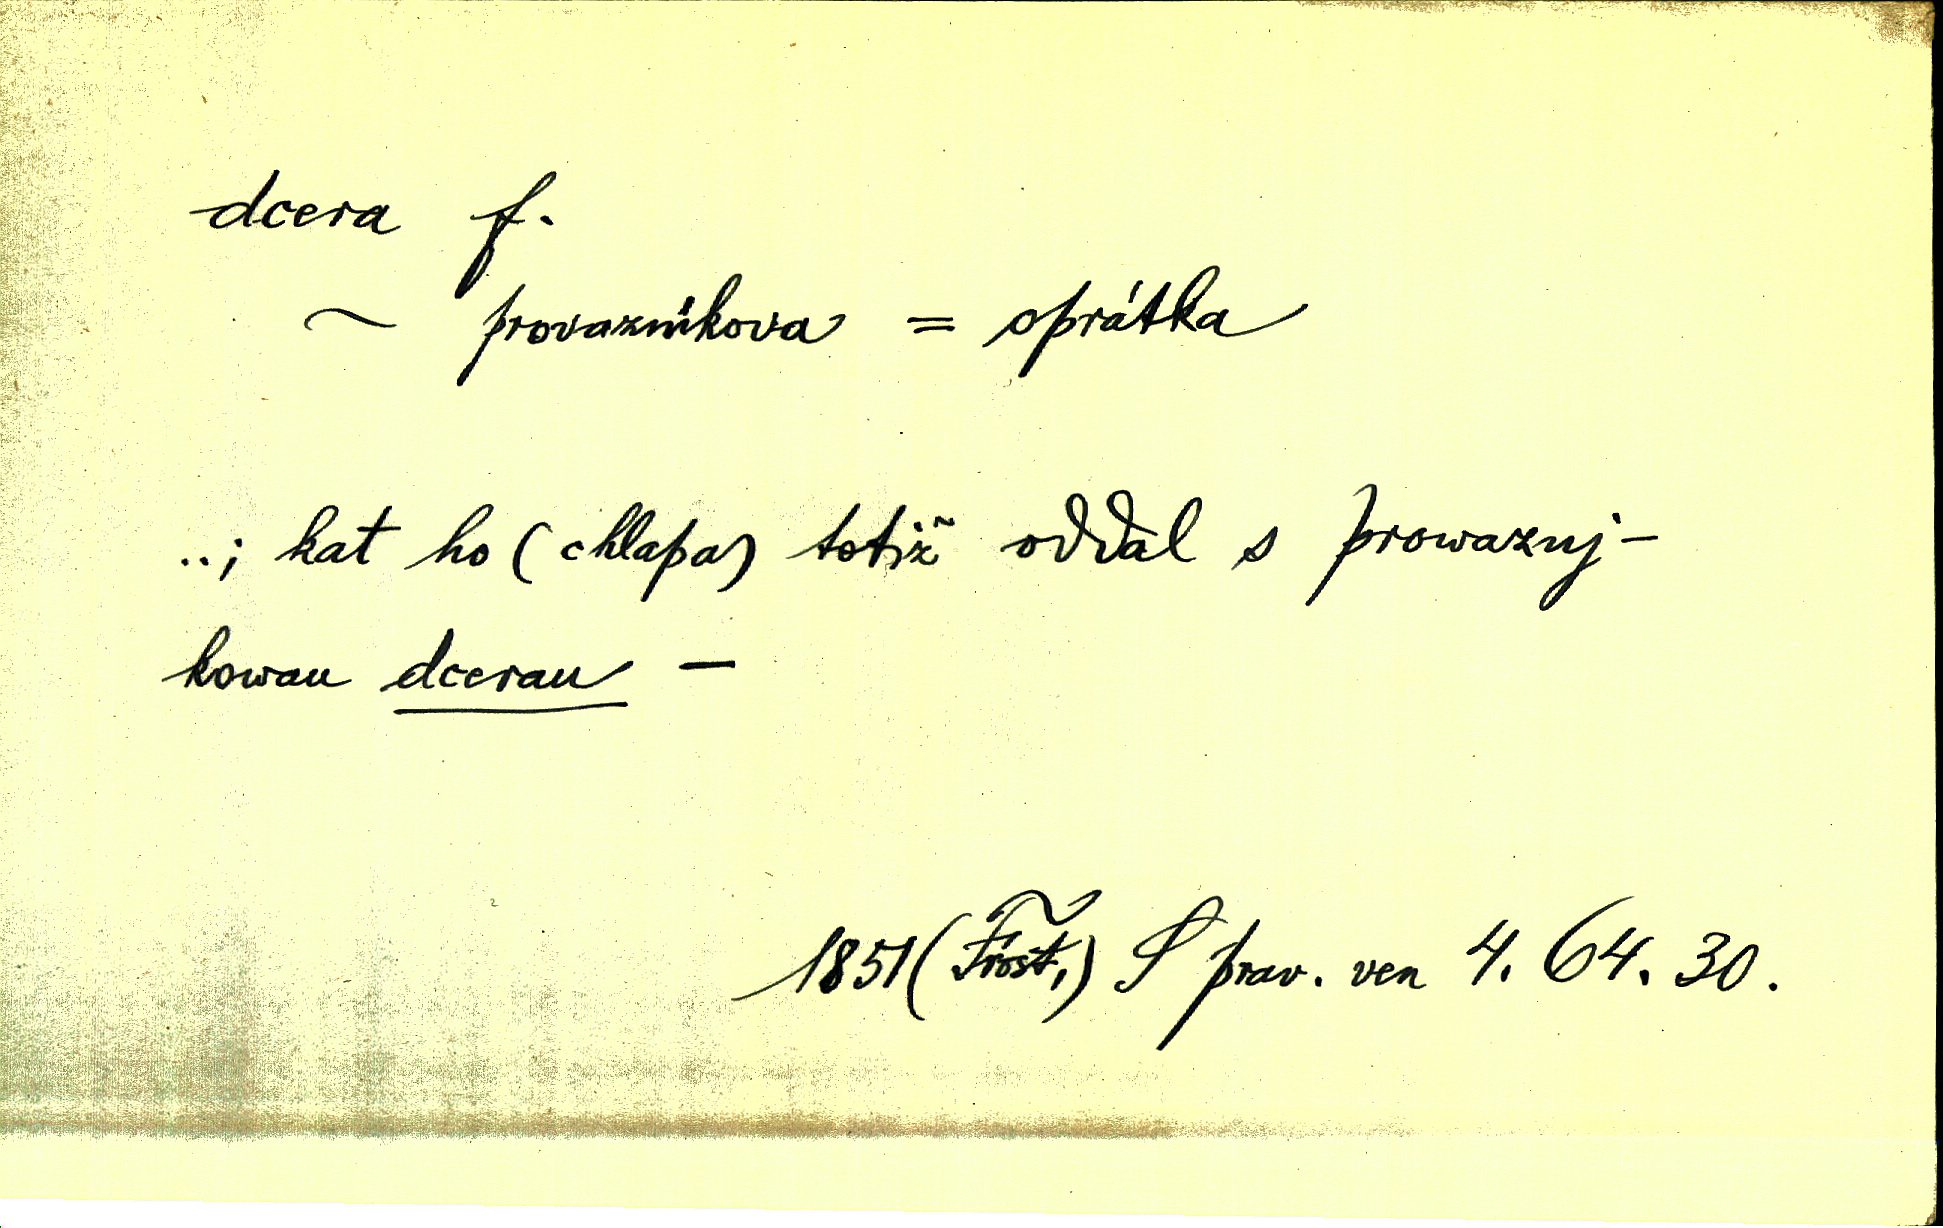 dcera f.
~ provazníkova = oprátka
..; kat ho (chlapa) totiž oddal s prowaznj-
kowau dcerau —
1851 (Frost,) S prav. ven 4. 64. 30.